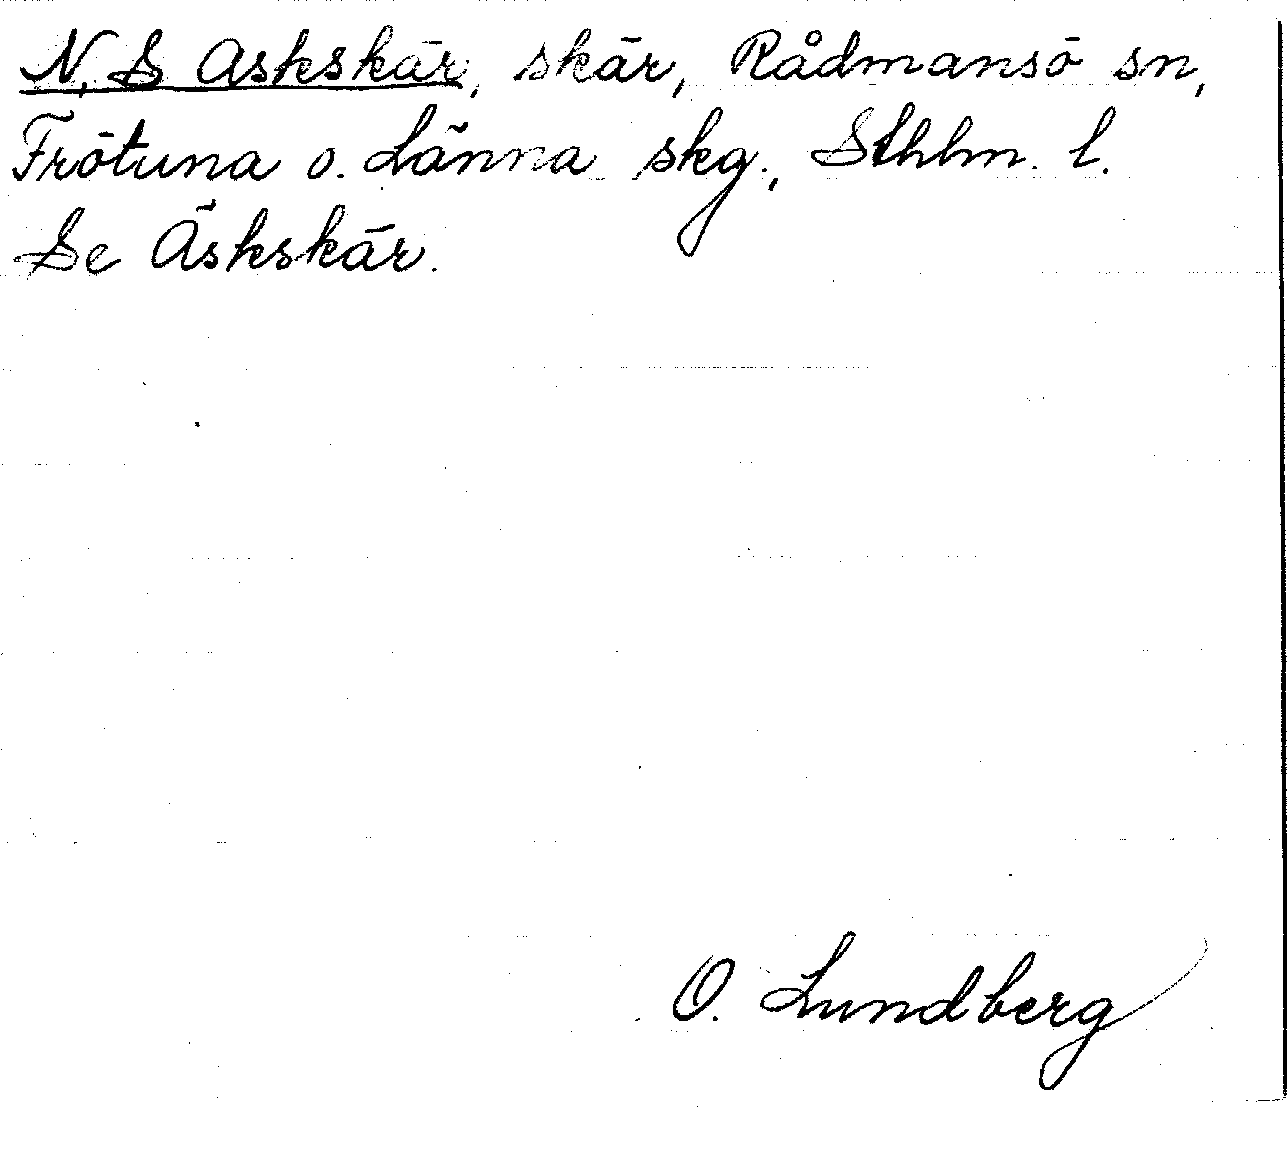 N, S Askskär, skär, Rådmansö sn,
Frötuna o. Länna skg., Sthlm. l.
Se Äskskär.
O. Lundberg